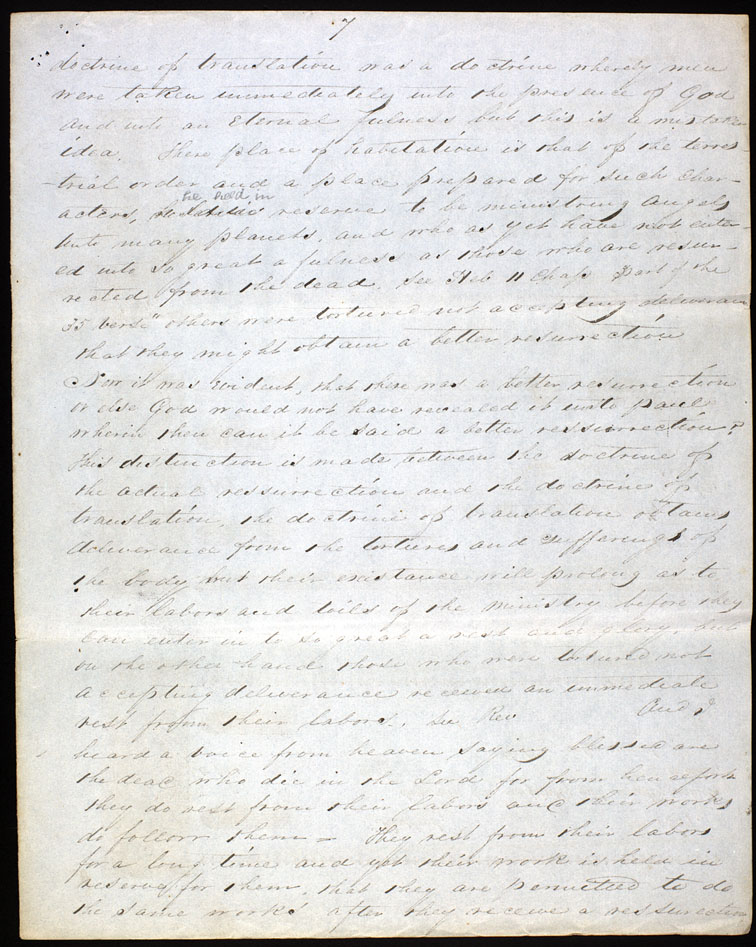 7
doctrine of translation was a doctrine whereby men
were taken immediately into the presence of God
and into an Eternal fulness but this is a mistaken
idea. There place of habitation is that of the terres-
trial order and a place prepared for such char-
he held in
acters, reserve to be ministring angels
unto many planets, and who as yet have not enter-
ed into so great a fulness as those who are resur-
rected from the dead. See Heb 11 Chap part of the
35 verse "others were tortured not accepting deliveran
that they might obtain a better resurrection
Now it was evident, that there was a better resurrection
or else God would not have revealed it unto Paul
wherein then can it be said a better ressurrection?
This distinction is made between the doctrine of
the actual ressurrection and the doctrine of
translation, the doctrine of translation obtains
deliverance from the tortures and sufferings of
the body but their existance will prolong as to
their labors and toils of the ministry before they
can enter in to so great a rest and glory, but
on the other hand those who were tortured not
accepting deliverance received an immediate
rest from their labors. See Rev And I
heard a voice from heaven saying blessed are
the dead who die in the Lord for from henceforth
they do rest from their labors and their works
do follow them = They rest from their labors
for a long time and yet their work is held in
reserve for them, that they are permitted to do
the same works after they receive a ressurection